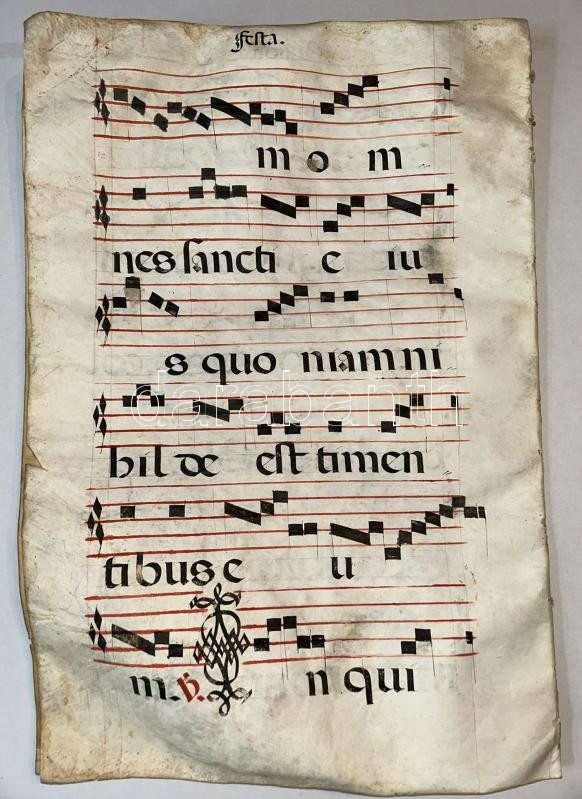 Festa.
m o m
nes sancti e iu
s quo niam ni
darabanth
hil de est timen
tibus e u
m. V. In qui